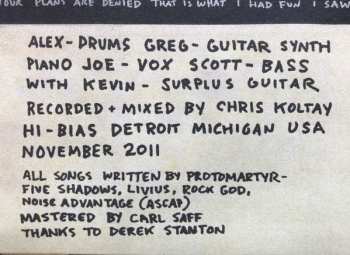 OUR PLANS ARE DENIED THAT IS WHAT I HAD FUN I SAW
ALEX- DRUMS GREG- GUITAR SYNTH
PIANO JOE- VOX SCOTT- BASS
WITH KEVIN- SURPLUS GUITAR
RECORDED + MIXED BY CHRIS KOLTAY
HI-BIAS DETROIT MICHIGAN USA
NOVEMBER 2011
ALL SONGS WRITTEN BY PROTOMARTYR-
FIVE SHADOWS, LIVIUS, ROCK GOD,
NOISE ADVANTAGE (ASCAP)
MASTERED BY CARL SAFF
THANKS TO DEREK STANTON